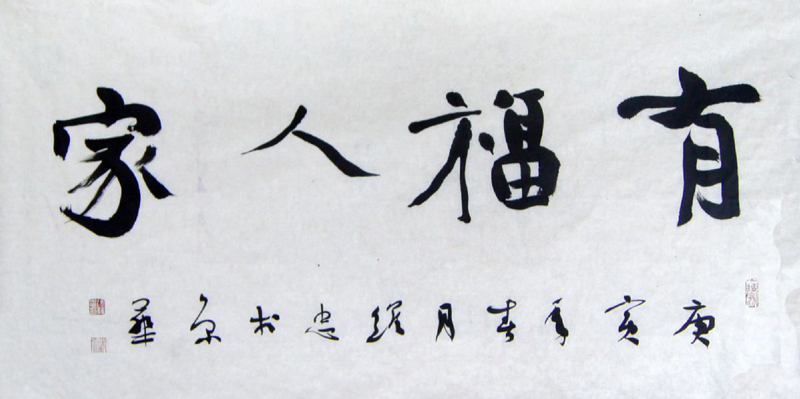 有福人家
庚寅年春月忠书京華